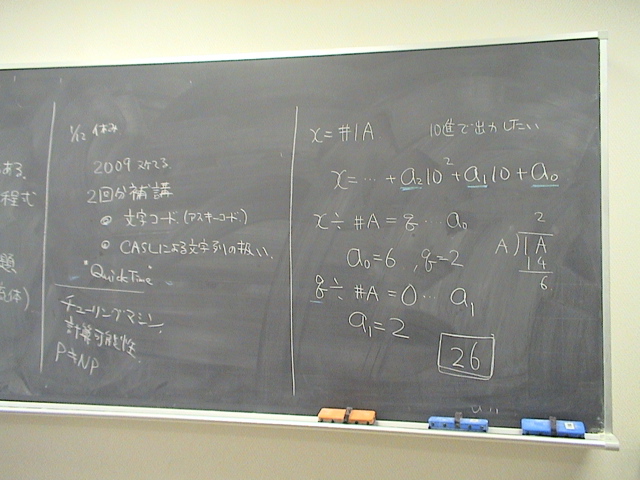 ある.
程式
題
1/12 休み
2009
2回分補講
文字コード(アスキーコード)
CASLによる文字列の扱い.
"QuickTime"
チューリングマシン
計算可能性
P≠NP
x = #1A 10進で出力したい
x = … + a₂10² + a₁10 + a₀
x ÷ #A = g … a₀
a₀ = 6 , g = 2
g ÷ #A = 0 … a₁
a₁ = 2
26
2
A ) 1 A
1 4
6